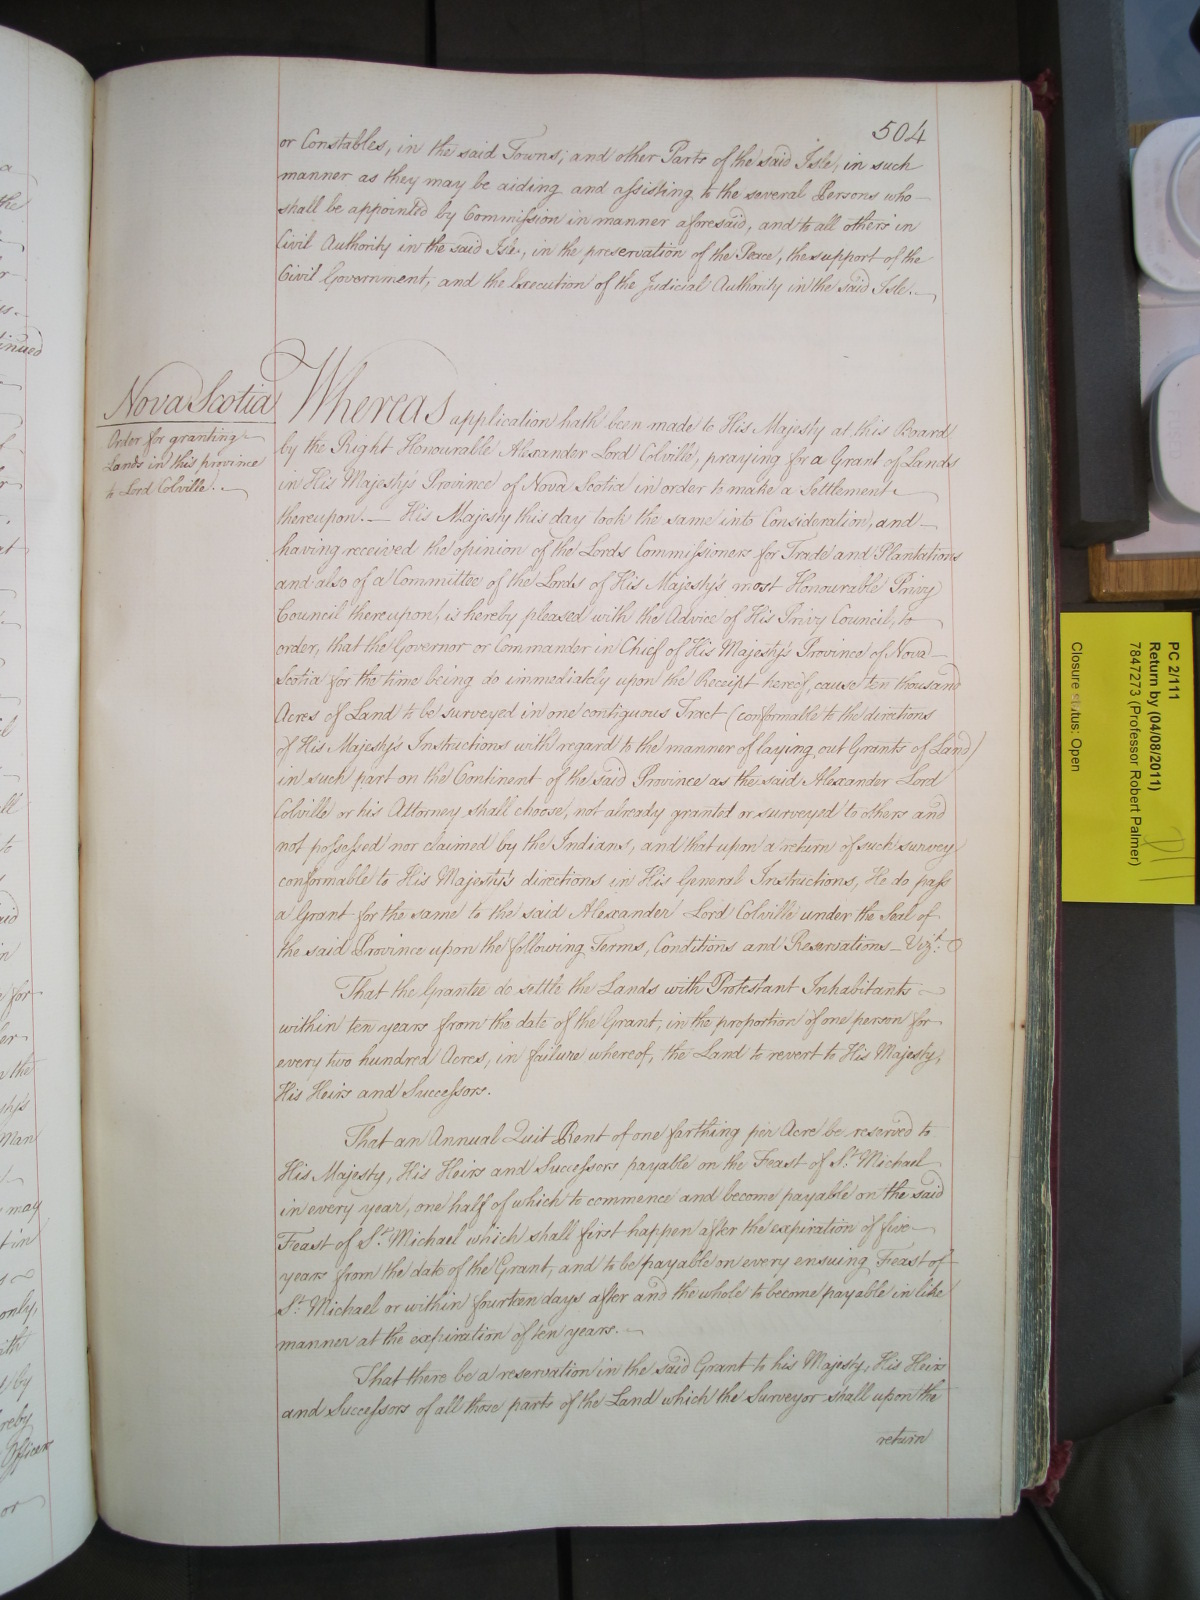 504
or Constables, in the said Towns, and other Parts of the said Isle, in such
manner as they may be aiding and assisting to the several Persons who
shall be appointed by Commission in manner aforesaid, and to all others in
Civil Authority in the said Isle, in the preservation of the Peace, the support of the
Civil Government, and the Execution of the Judicial Authority in the said Isle.
Nova Scotia
Order for granting
Lands in this province
to Lord Colville.
Whereas application hath been made to His Majesty at this Board
by the Right Honourable Alexander Lord Colville, praying for a Grant of Lands
in His Majesty's Province of Nova Scotia in order to make a Settlement
thereupon. — His Majesty this day took the same into Consideration, and
having received the opinion of the Lords Commissioners for Trade and Plantations
and also of a Committee of the Lords of His Majesty's most Honourable Privy
Council thereupon, is hereby pleased with the Advice of His Privy Council, to
order, that the Governor or Commander in Chief of His Majesty's Province of Nova
Scotia for the time being do immediately upon the Receipt hereof, cause ten thousand
Acres of Land to be surveyed in one contiguous Tract (conformable to the directions
of His Majesty's Instructions with regard to the manner of laying out Grants of Land)
in such part on the Continent of the said Province as the said Alexander Lord
Colville or his Attorney shall choose, not already granted or surveyed to others and
not possessed nor claimed by the Indians, and that upon a return of such survey
conformable to His Majesty's directions in His General Instructions, He do pass
a Grant for the same to the said Alexander Lord Colville under the Seal of
the said Province upon the following Terms, Conditions and Reservations — Vizt.
That the Grantee do settle the Lands with Protestant Inhabitants
within ten years from the date of the Grant, in the proportion of one person for
every two hundred Acres, in failure whereof, the Land to revert to His Majesty,
His Heirs and Successors.
That an Annual Quit Rent of one farthing per Acre be reserved to
His Majesty, His Heirs and Successors payable on the Feast of St. Michael
in every year, one half of which to commence and become payable on the said
Feast of St. Michael which shall first happen after the expiration of five
years from the date of the Grant, and to be payable on every ensuing Feast of
St. Michael or within fourteen days after and the whole to become payable in like
manner at the expiration of ten years.
That there be a reservation in the said Grant to his Majesty, His Heirs
and Successors of all those parts of the Land which the Surveyor shall upon the
return
PC 2/111
Return by (04/08/2011)
7847273 (Professor Robert Palmer)
Closure status: Open